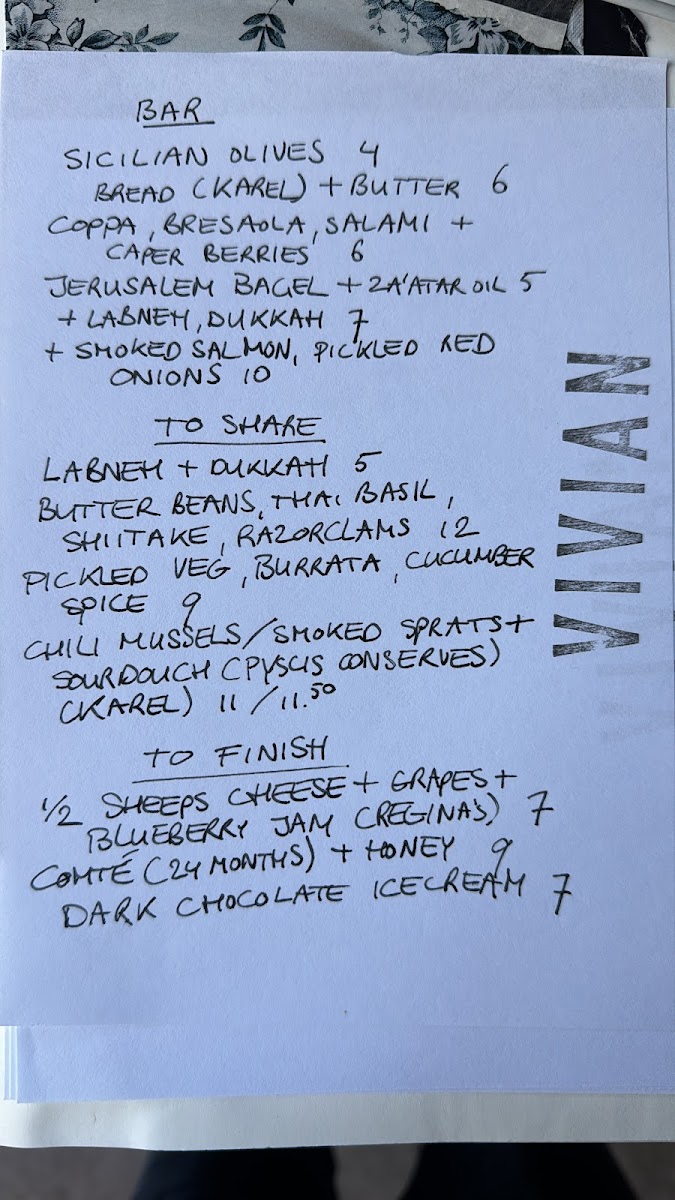 BAR
SICILIAN OLIVES 4
BREAD (KAREL) + BUTTER 6
COPPA, BRESAOLA, SALAMI +
CAPER BERRIES 6
JERUSALEM BAGEL + ZA'ATAR OIL 5
+ LABNEH, DUKKAH 7
+ SMOKED SALMON, PICKLED RED
ONIONS 10
TO SHARE
LABNEH + DUKKAH 5
BUTTER BEANS, THAI BASIL,
SHIITAKE, RAZORCLAMS 12
PICKLED VEG, BURRATA, CUCUMBER
SPICE 9
CHILI MUSSELS/SMOKED SPRATS +
SOURDOUGH (PYSCIS CONSERVES)
(KAREL) 11 / 11.50
TO FINISH
1/2 SHEEPS CHEESE + GRAPES +
BLUEBERRY JAM (REGINA'S) 7
COMTÉ (24 MONTHS) + HONEY 9
DARK CHOCOLATE ICECREAM 7
VIVIAN